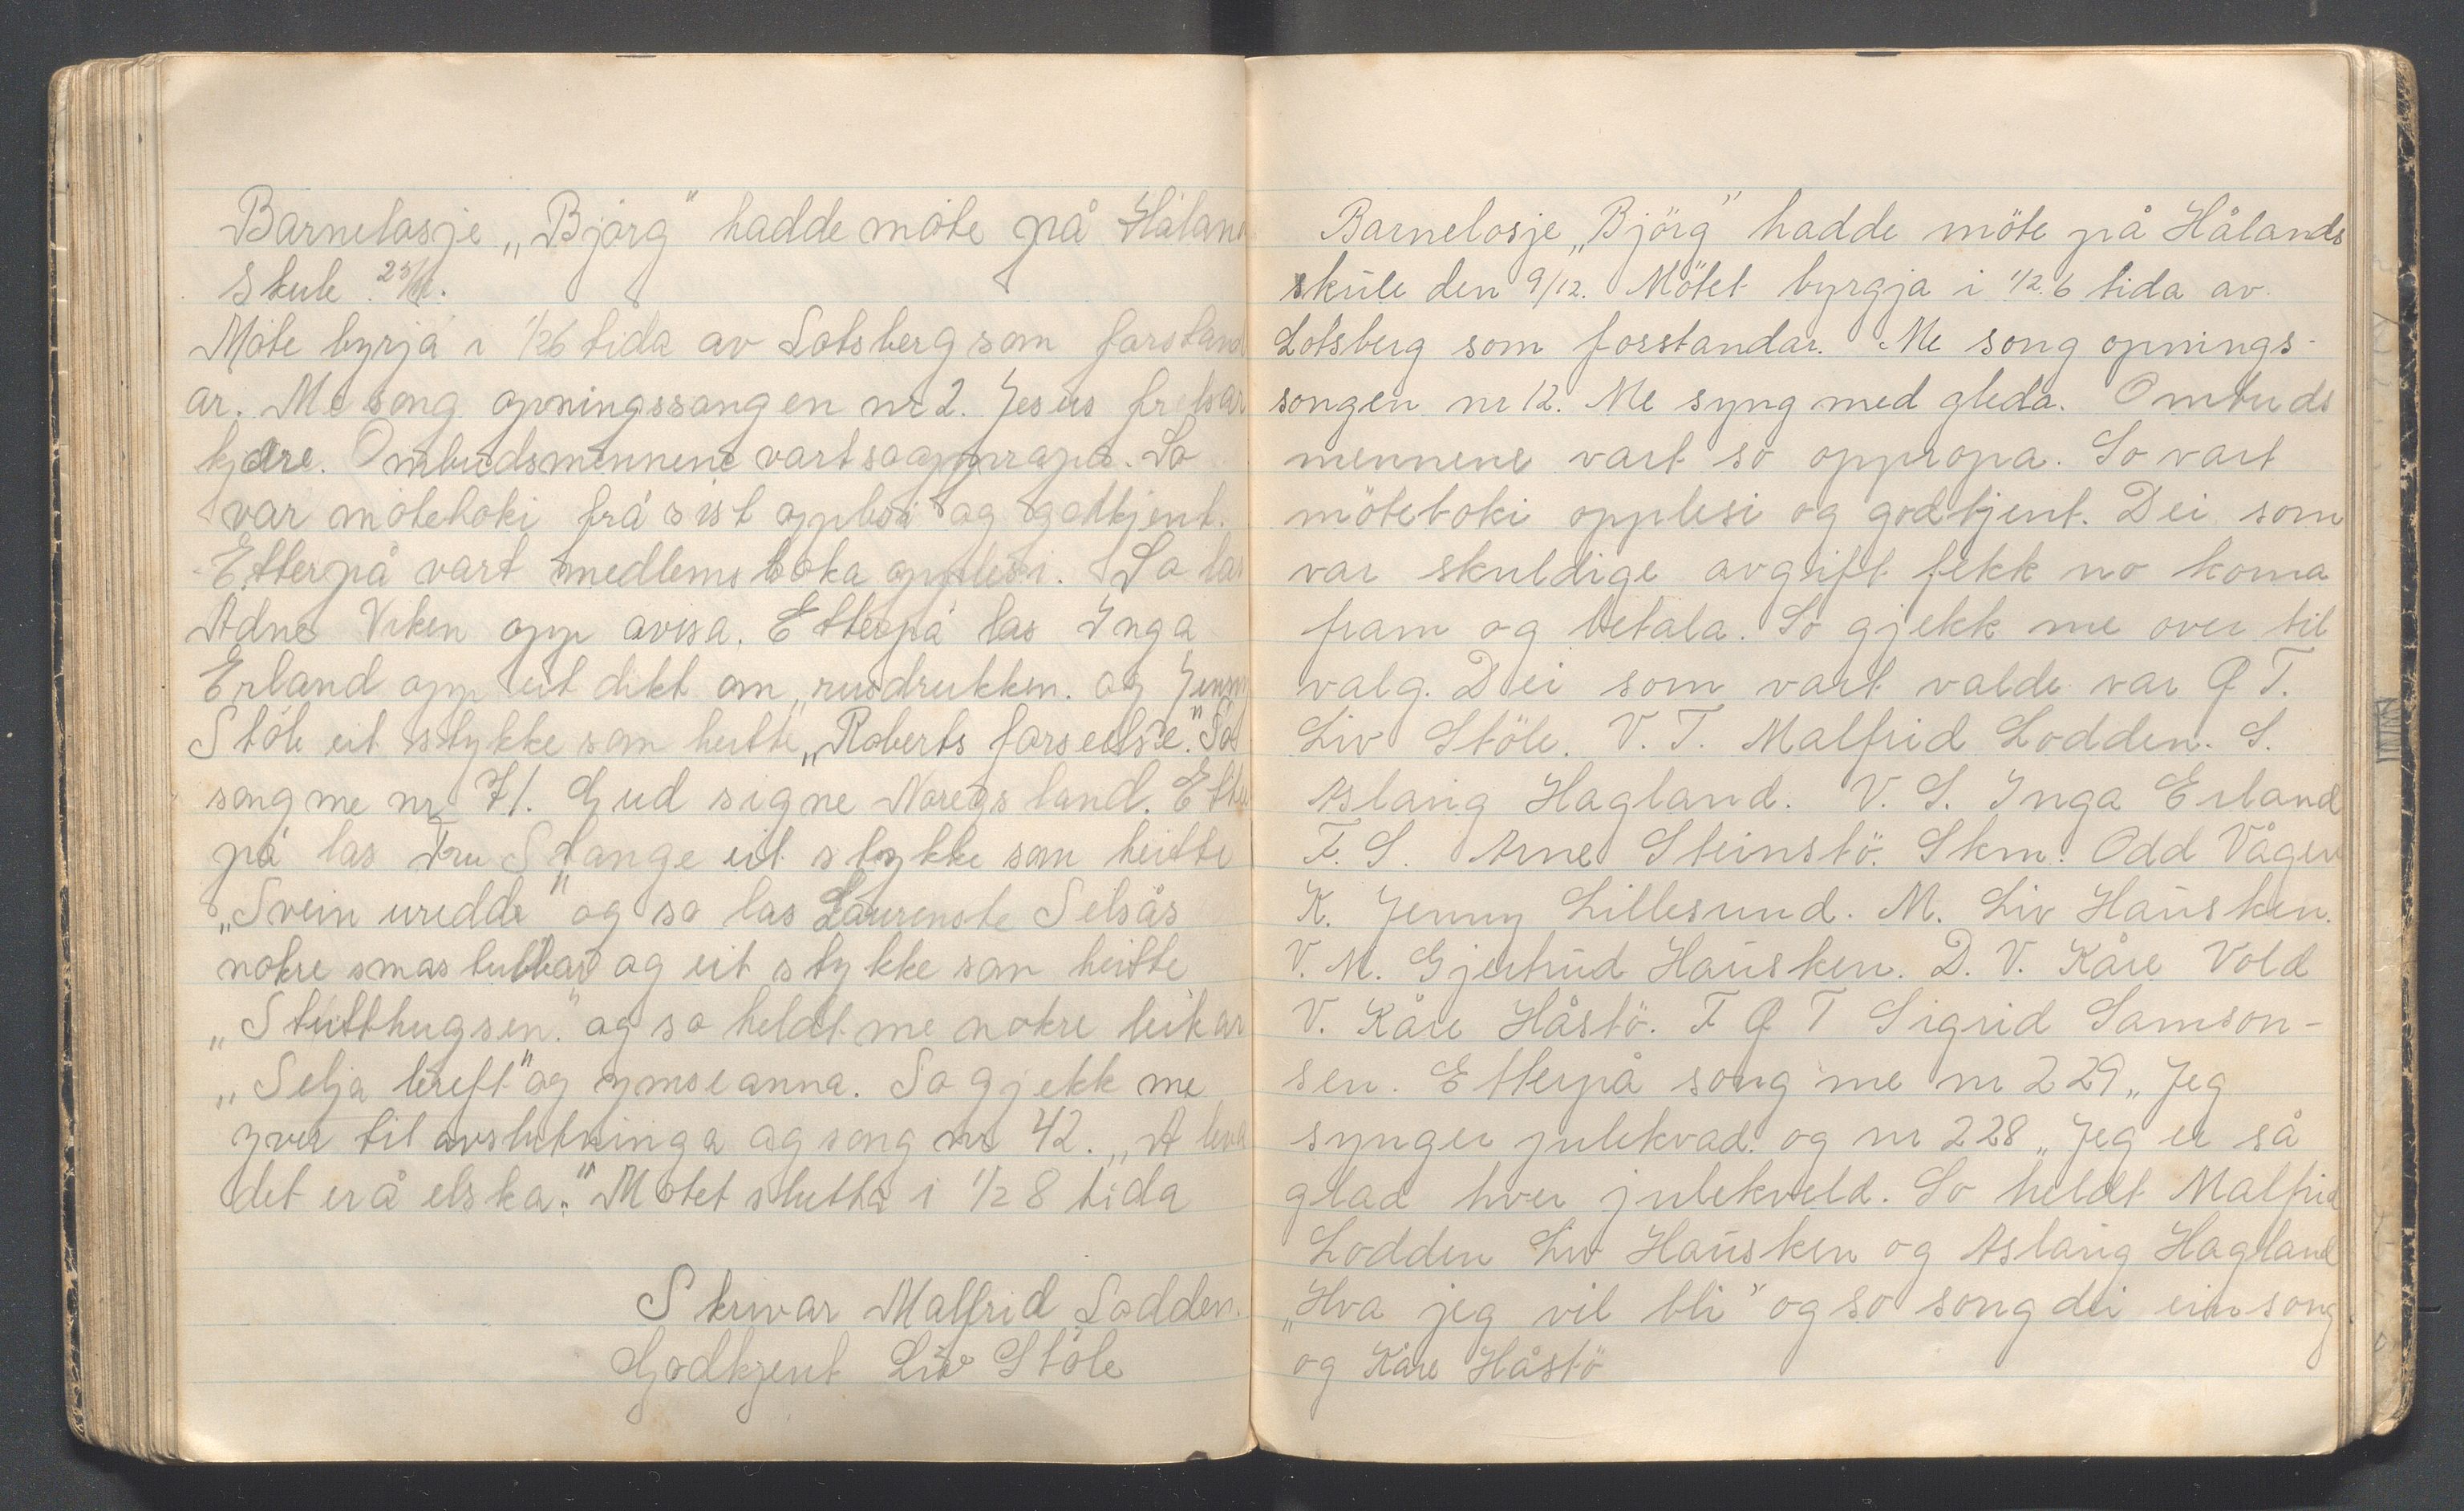 Barnelosje „Björg" hadde möte på Håland
Skule 25/11.
Möte byrja i 1/2 6 tida av Lotsberg som forstand
ar. Me song opningssongen nr 2. Jesus frelsar
kjære. Ombudsmennene vart so oppropa. So
var möteboki frå sist opplesi og godkjent.
Etterpå vart medlemsboka opplesi. So las
Adne Viken opp avisa. Etterpå las Inga
Erland opp eit dikt om „rusdrukken. og Jenny
Stöle eit stykke som heitte „Roberts forseelse." So
song me nr 71. Gud signe Noregs land. Etter
på las Fru Stange eit stykke som heitte
„Svein uredde" og so las Laurenste Selsås
nokre småstubbar og eit stykke som heitte
„Stutthugsen." og so heldt me nokre leikar
„Selja lereft" og ymse anna. So gjekk me
yver til avslutninga og song nr 42. „Å leva
det er å elska." Mötet slutta i 1/2 8 tida
Skrivar Malfrid Lodden.
Godkjent Liv Stöle
Barnelosje „Björg" hadde möte på Hålands
skule den 9/12. Mötet byrgja i 1/2. 6 tida av
Lotsberg som forstandar. Me song opnings-
songen nr 12. Me syng med gleda. Ombuds
mennene vart so oppropa. So vart
möteboki opplesi og godkjent. Dei som
var skuldige avgift fekk no koma
fram og betala. So gjekk me over til
valg. Dei som vart valde var Q T.
Liv Stöle. V. T. Malfrid Lodden. S.
Aslaug Hagland. V. S. Inga Erland
F. S. Arne Steinstö. Skm. Odd Vågen
K. Jenny Lillesund. M. Liv Hausken.
V. M. Gjertrud Hausken. D. V. Kåre Vold
V. Kåre Håstö. F Q T Sigrid Samson-
sen. Etterpå song me nr 229 „Jeg
synger julekvad. og nr 228 „Jeg er så
glad hver julekveld. So heldt Malfrid
Lodden Liv Hausken og Aslaug Hagland
„Hva jeg vil bli" og so song dei ein song
og Kåre Håstö